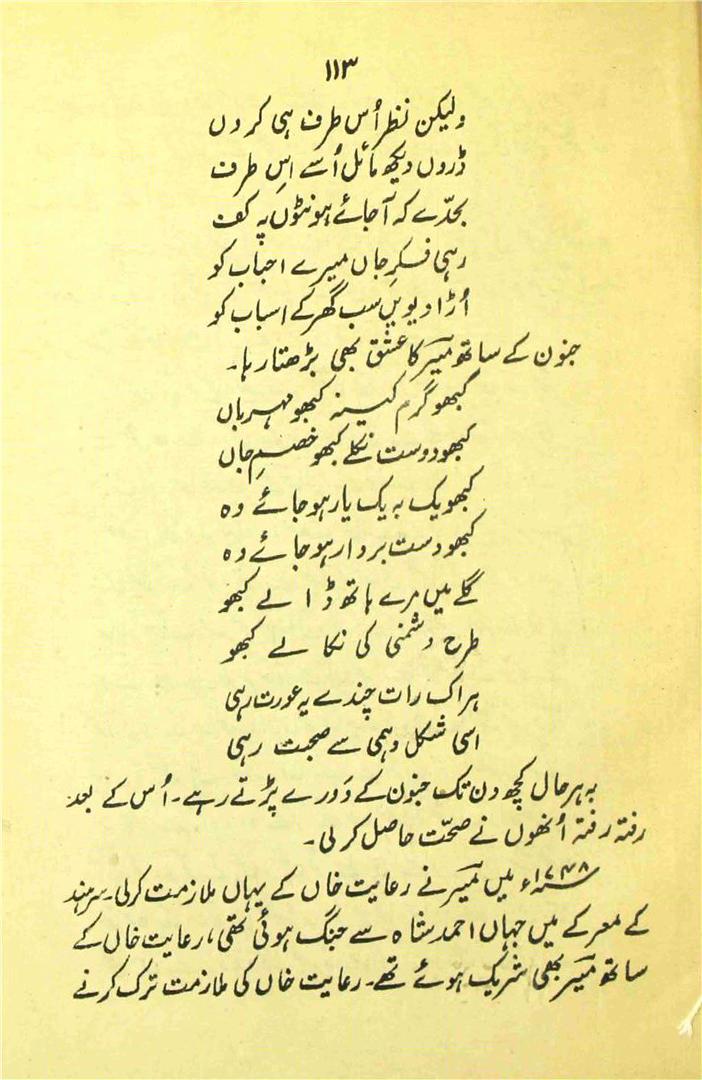 ۱۱۳
ولیکن نظر اُس طرف ہی کروں
ڈروں دیکھ مائل اُسے اِس طرف
بحدّے کہ آ جائے ہونٹوں پہ کف
رہی فکرِ جاں میرے احباب کو
اُڑا دیویں سب گھر کے اسباب کو
جنون کے ساتھ میرؔ کا عشق بھی بڑھتا رہا۔
کبھو گرم کینہ کبھو مہرباں
کبھو دوست نکلے کبھو خصمِ جاں
کبھو یک بہ یک یار ہو جائے وہ
کبھو دست بردار ہو جائے وہ
گلے میں مرے ہاتھ ڈالے کبھو
طرح دشمنی کی نکالے کبھو
ہر اک رات چندے یہ عورت رہی
اسی شکل وہمی سے صحبت رہی
بہ ہر حال کچھ دن تک جنون کے دَورے پڑتے رہے۔ اُس کے بعد
رفتہ رفتہ اُنھوں نے صحّت حاصل کر لی۔
۱۷۴۸ء میں میرؔ نے رعایت خاں کے یہاں ملازمت کرلی۔ سرہند
کے معرکے میں جہاں احمد شاہ سے جنگ ہوئی تھی، رعایت خاں کے
ساتھ میرؔ بھی شریک ہوئے تھے۔ رعایت خاں کی ملازمت ترک کرنے